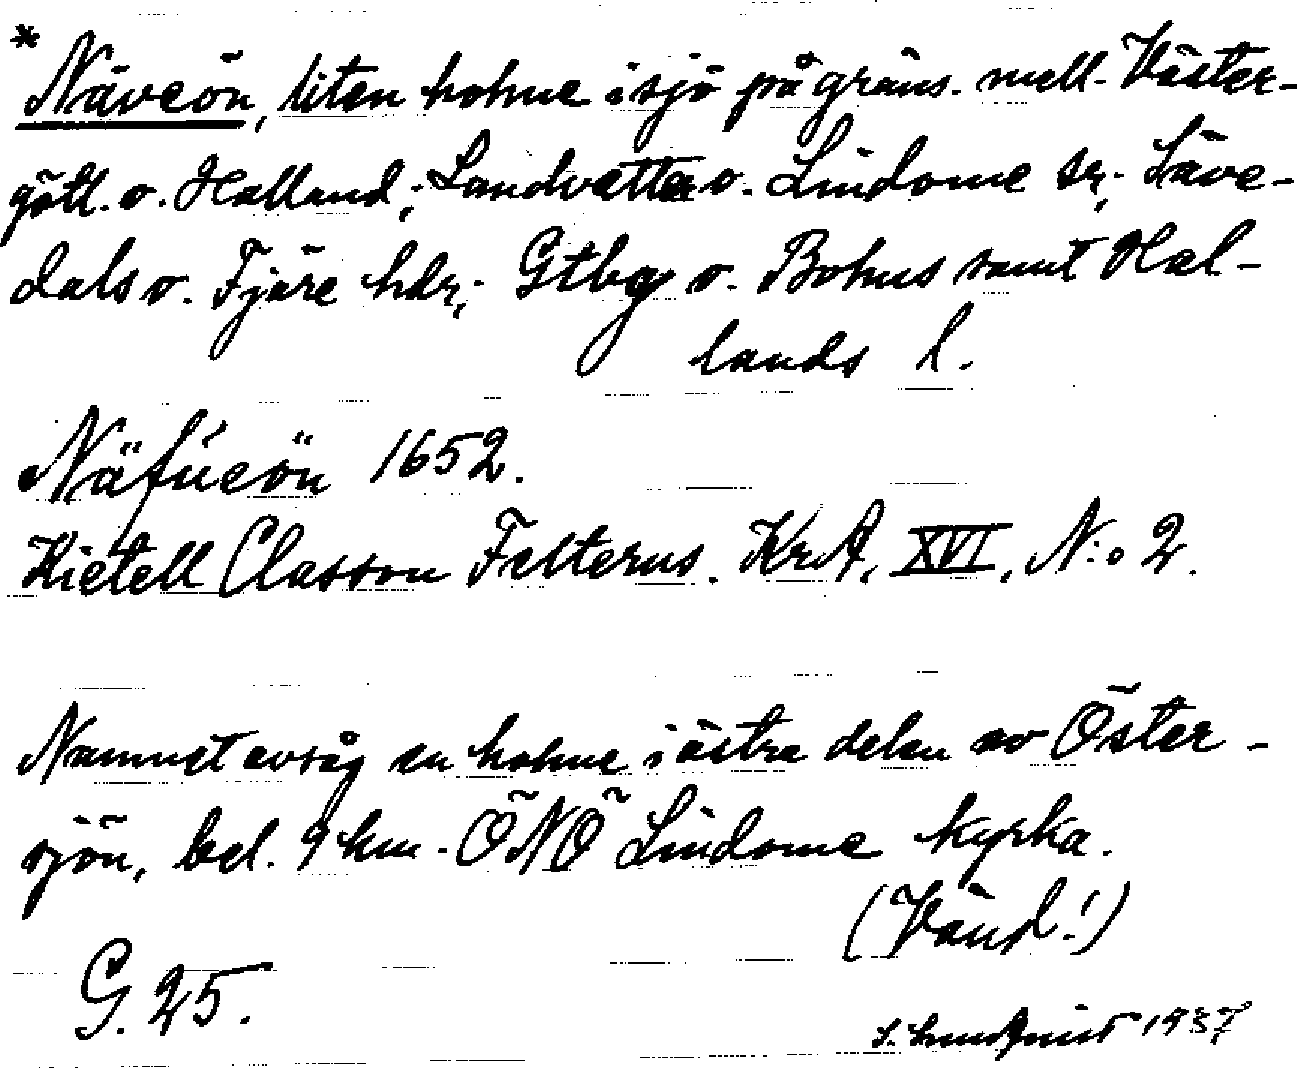 * Näveön, liten holme i sjö på gräns. mell. Väster-
götl. o. Halland; Landvetter o. Lindome sr; Säve-
dals o. Fjäre hdr; Gtbg o. Bohus samt Hal-
lands l.
Näfúeön 1652.
Kietell Classon Felterus. KrA, XVI, N:o 2.
Namnet avsåg en holme i östra delen av Öster-
sjön, bel. 9 km. ÖNÖ Lindome kyrka.
(Vänd!)
G. 25.
S. Lundqvist 1937